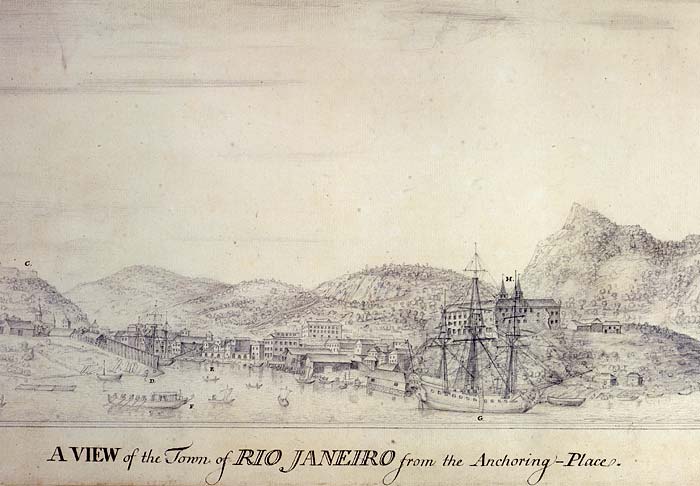 C.
H.
E
D
F
G
A VIEW of the Town of RIO JANEIRO from the Anchoring-Place.